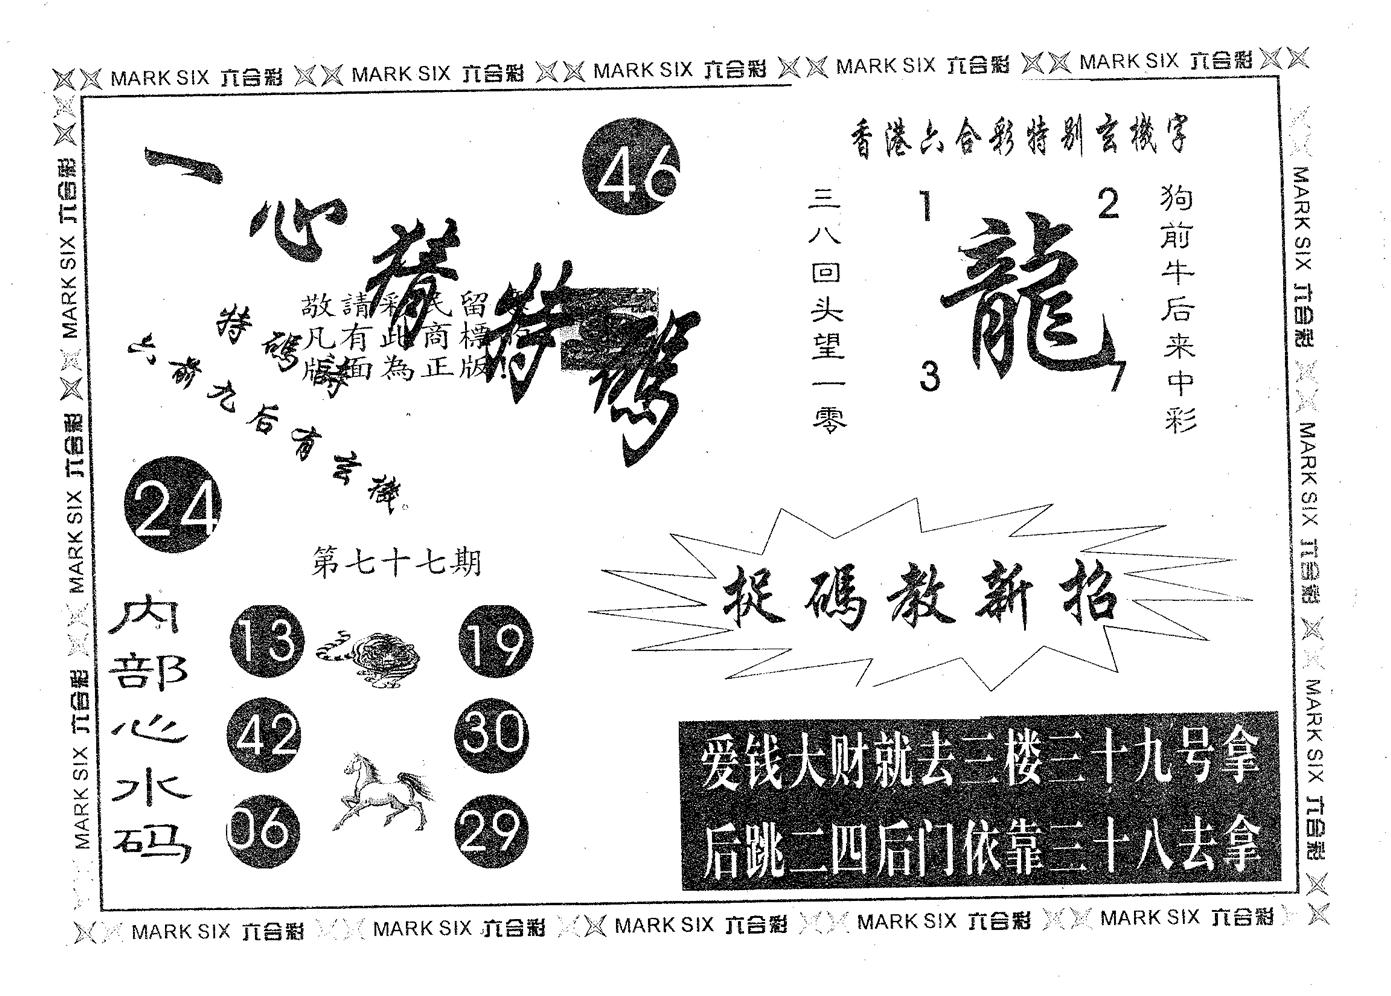 MARK SIX 六合彩 MARK SIX 六合彩 MARK SIX 六合彩 MARK SIX 六合彩 MARK SIX 六合彩
一心猜特碼
46
敬請彩民留意
凡有此商標的
版面為正版!
特碼詩
六前九后有玄機。
24
第七十七期
内部心水码
13
19
42
30
06
29
香港六合彩特别玄機字
三八回头望一零
1
2
龍
3
7
狗前牛后来中彩
捉碼教新招
爱钱大财就去三楼三十九号拿
后跳二四后门依靠三十八去拿
MARK SIX 六合彩 MARK SIX 六合彩 MARK SIX 六合彩
MARK SIX 六合彩 MARK SIX 六合彩 MARK SIX 六合彩
MARK SIX 六合彩 MARK SIX 六合彩 MARK SIX 六合彩 MARK SIX 六合彩 MARK SIX 六合彩